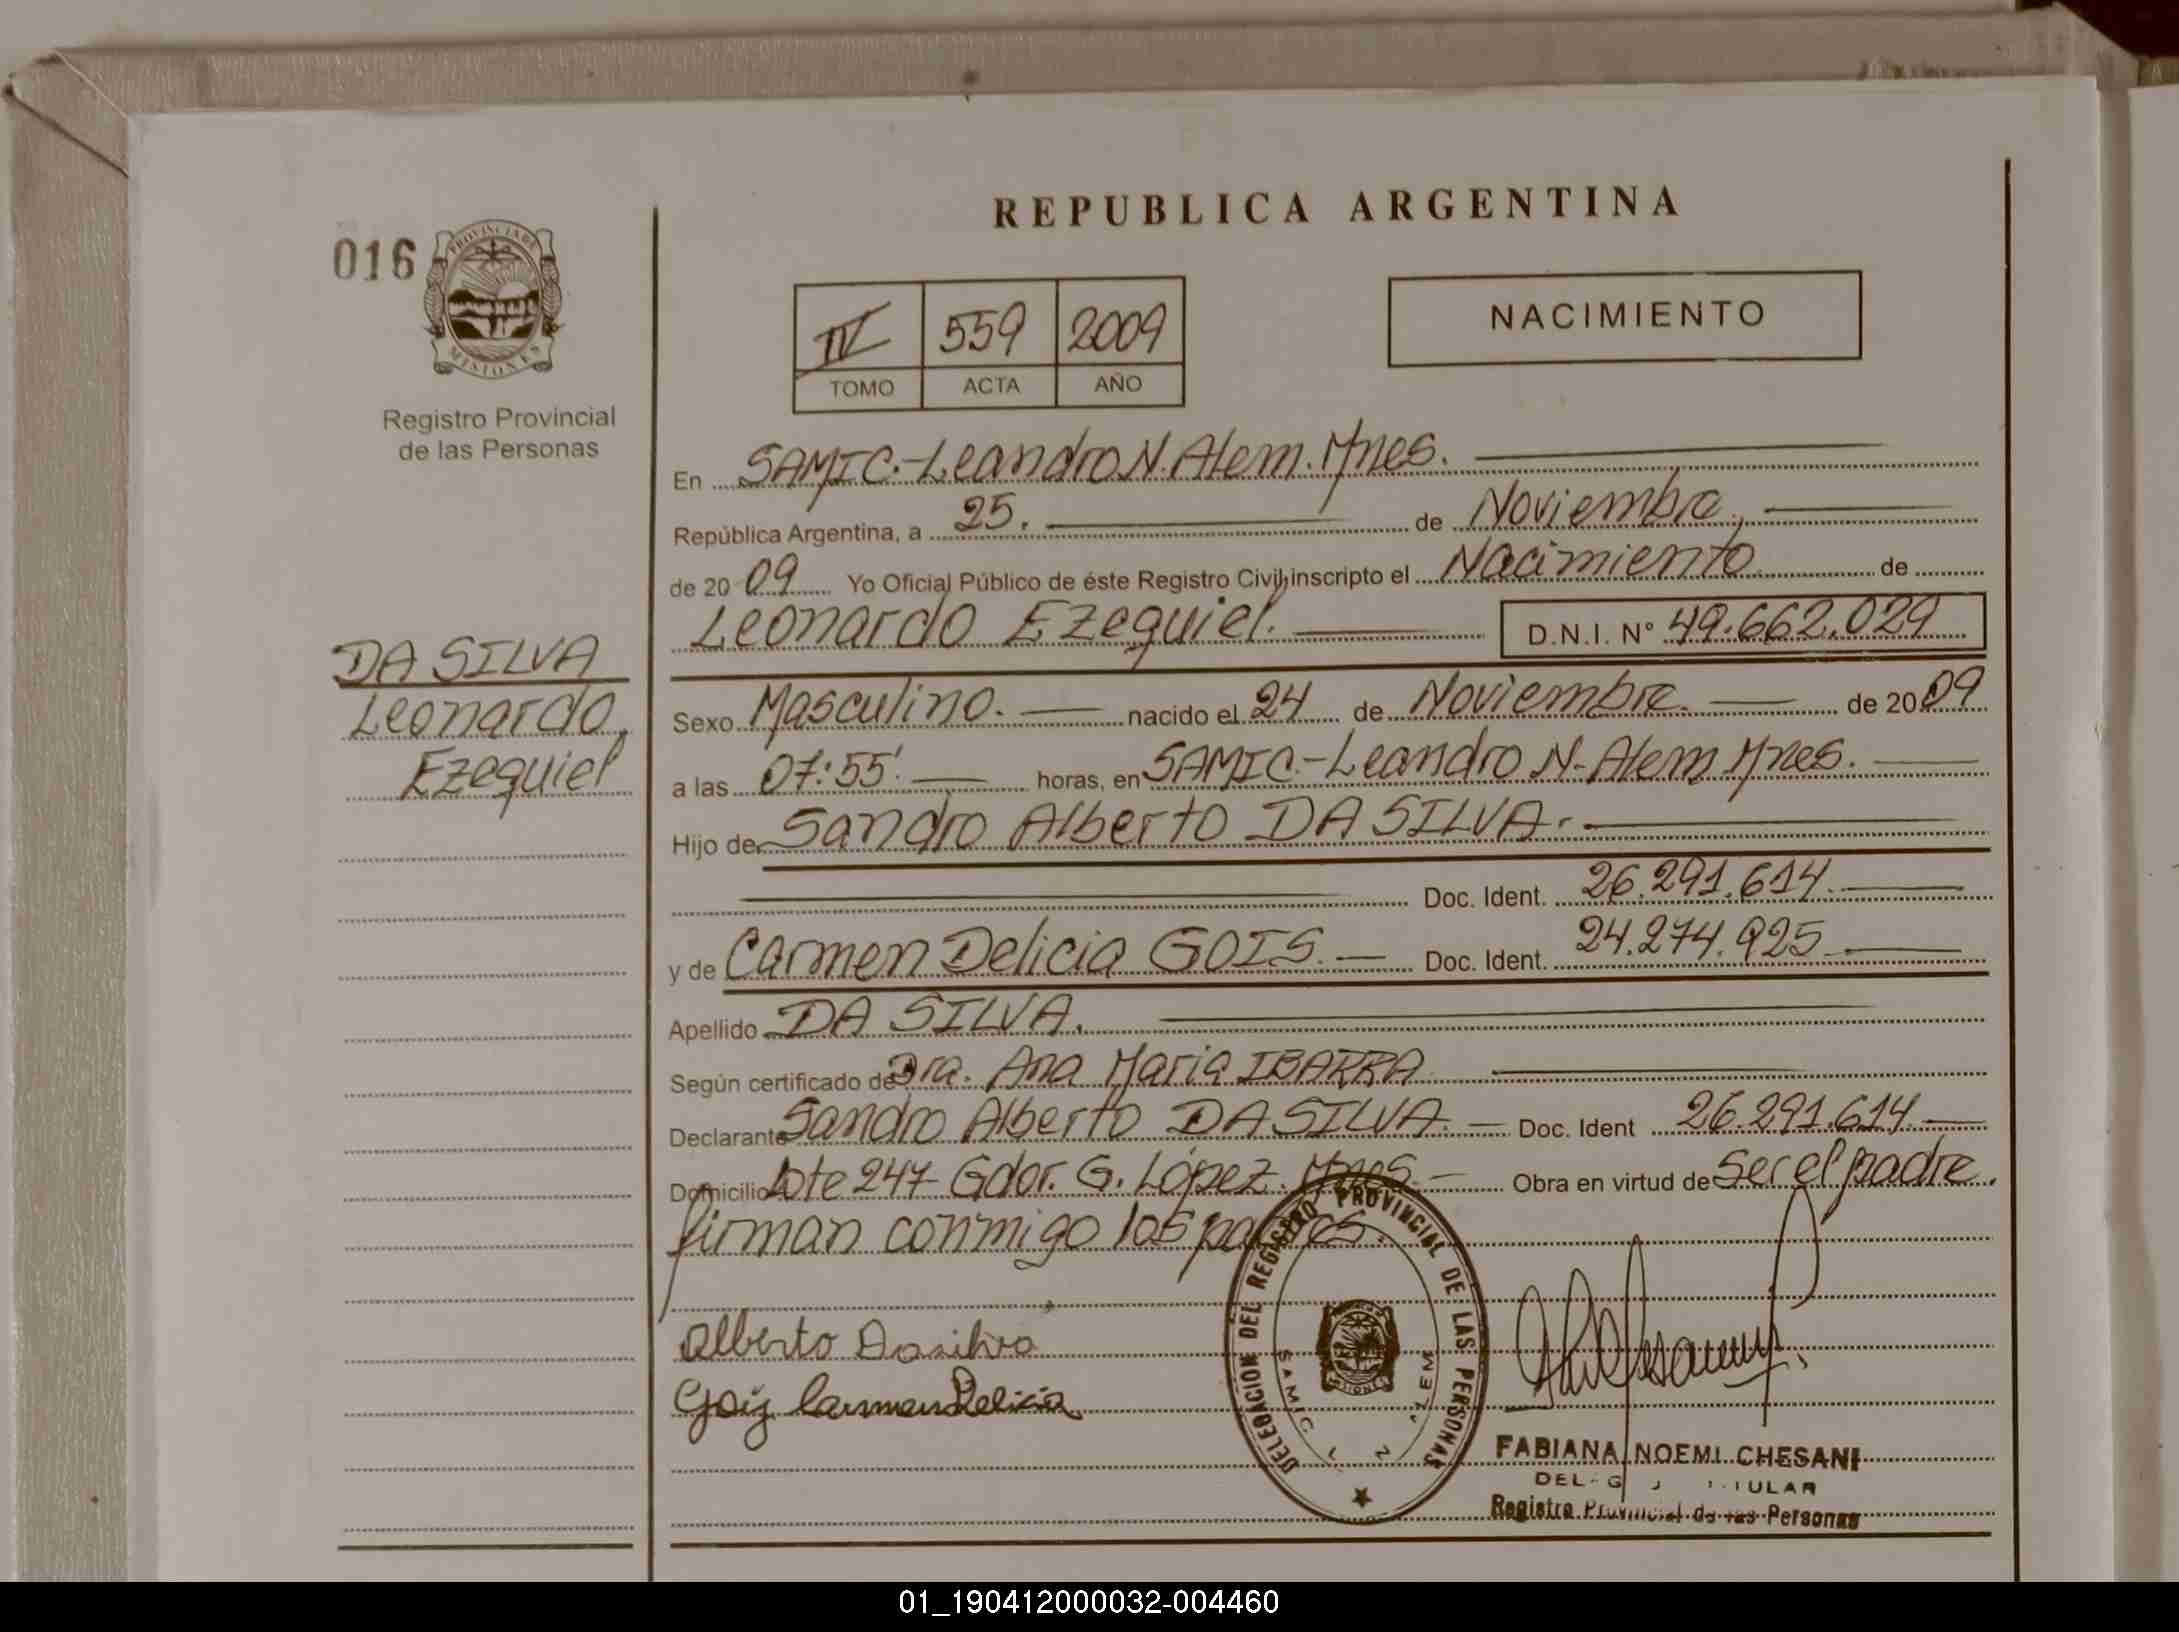 REPUBLICA ARGENTINA
016
PROVINCIA DE
MISIONES
Registro Provincial
de las Personas
IV 559 2009
TOMO ACTA AÑO
NACIMIENTO
En SAMIC.-Leandro N. Alem. Mnes.
República Argentina, a 25. de Noviembre,
de 20 09 Yo Oficial Público de éste Registro Civil, inscripto el Nacimiento de
Leonardo Ezequiel. D.N.I. N° 49.662.029
DA SILVA
Leonardo
Ezequiel
Sexo Masculino. nacido el 24 de Noviembre. de 20 09
a las 07:55'. horas, en SAMIC.-Leandro N-Alem Mnes.
Hijo de Sandro Alberto DA SILVA.
Doc. Ident. 26.291.614.
y de Carmen Delicia GOIS. Doc. Ident. 24.274.925
Apellido DA SILVA.
Según certificado de Dra. Ana Maria IBARRA
Declarante Sandro Alberto DA SILVA. Doc. Ident 26.291.614.
Domicilio Lote 247 Gdor. G. López. Mnes. Obra en virtud de Ser el padre.
firman conmigo los padres.
Alberto Dasilva
Gois Carmen Delicia
DELEGACION DEL REGISTRO PROVINCIAL DE LAS PERSONAS
SAMIC L N ALEM
MISIONES
FABIANA NOEMI CHESANI
Registro Provincial de las Personas
01_190412000032-004460